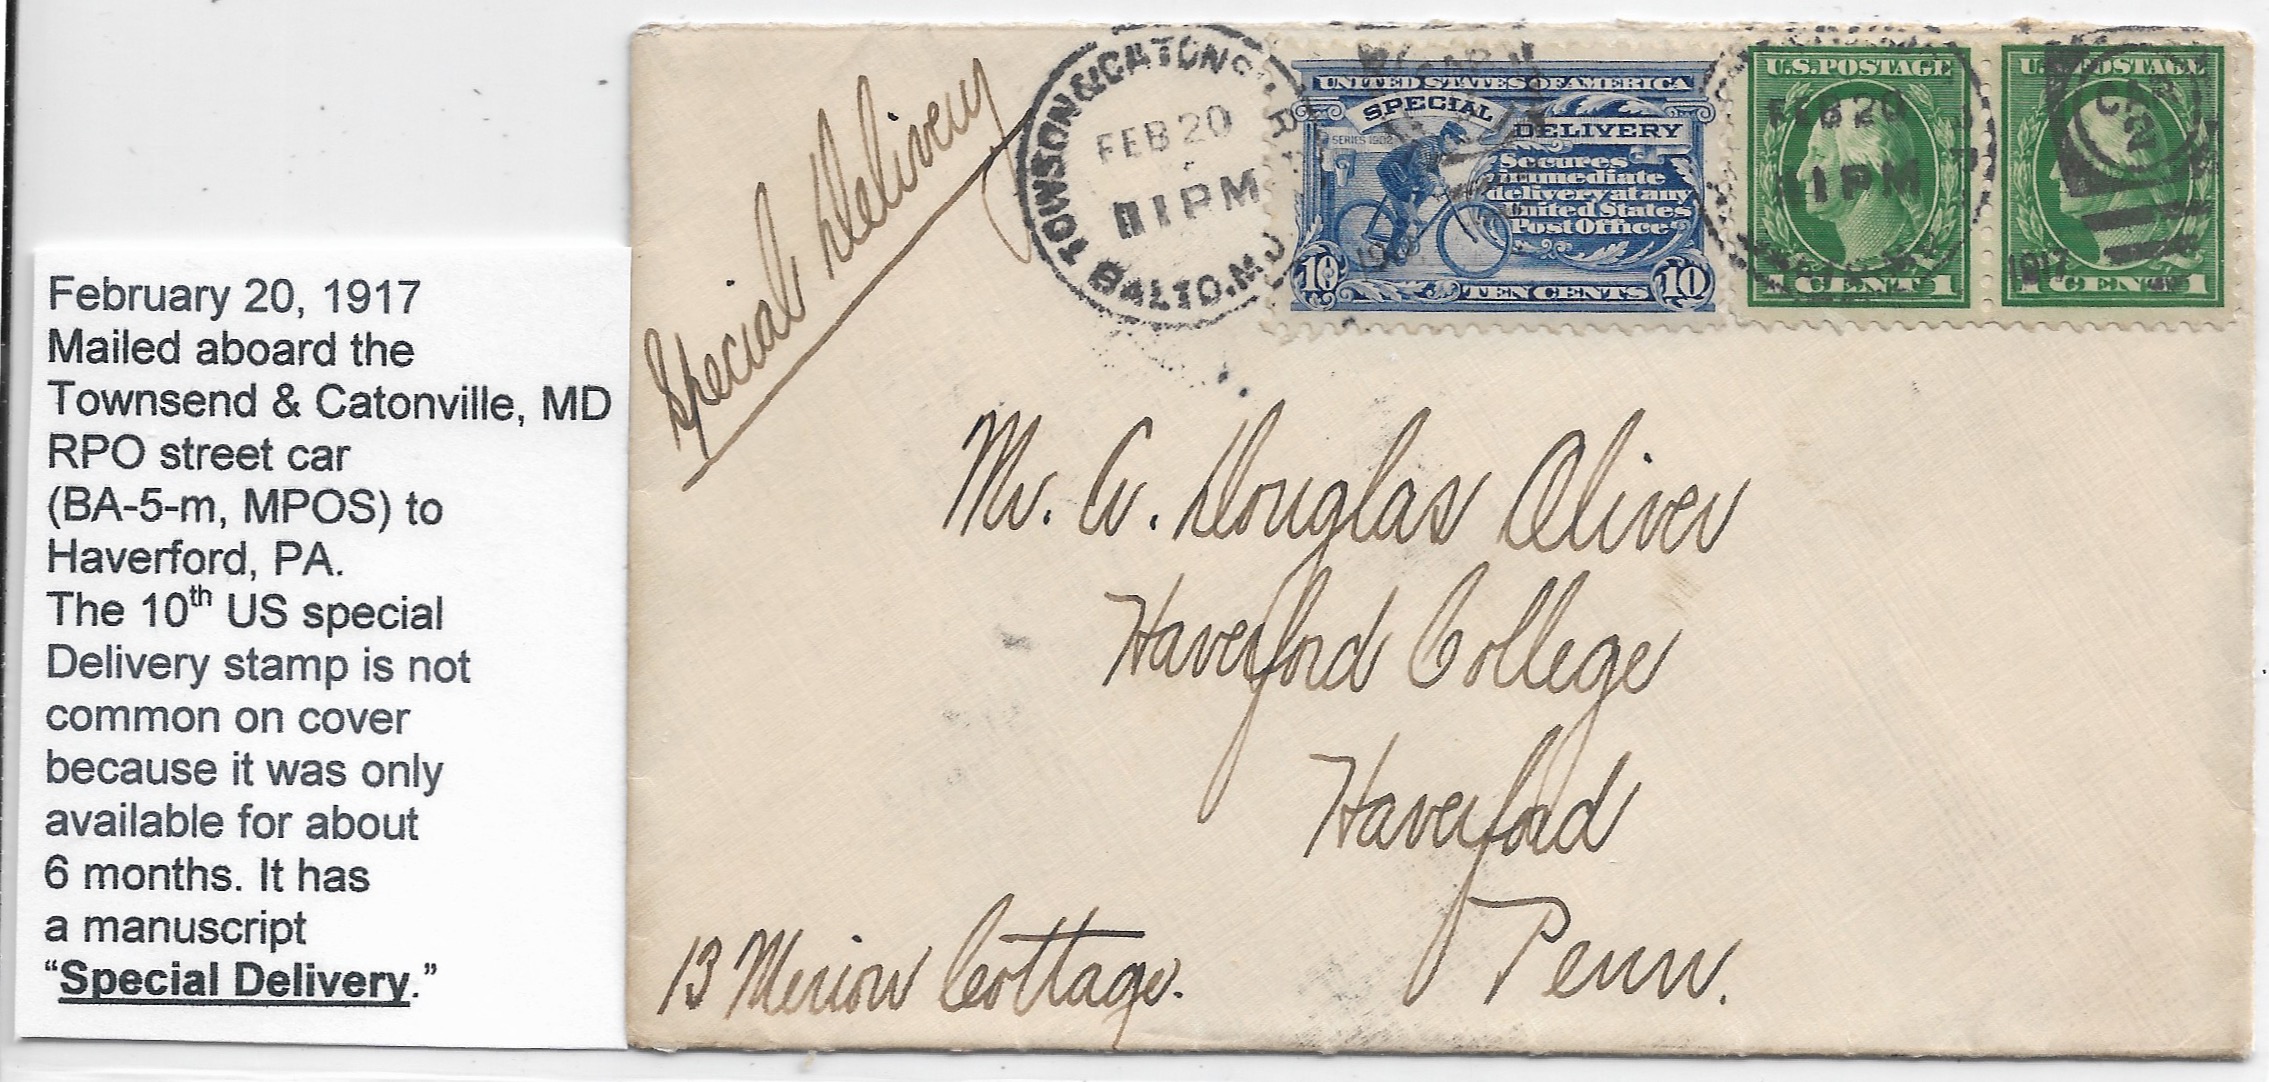 February 20, 1917
Mailed aboard the
Townsend & Catonville, MD
RPO street car
(BA-5-m, MPOS) to
Haverford, PA.
The 10th US special
Delivery stamp is not
common on cover
because it was only
available for about
6 months. It has
a manuscript
“Special Delivery.”
Special Delivery
TOWSON & CATONS
FEB 20
11 PM
BALTO. MD
UNITED STATES OF AMERICA
SPECIAL
DELIVERY
SERIES 1902
Secures
immediate
delivery at any
United States
Post Office
10 TEN CENTS 10
U.S. POSTAGE
FEB 20
11 PM
1 CENT 1
U.S. POSTAGE
CAR
2
1917
1 CENT 1
Mr. W. Douglas Oliver
Haverford College
Haverford
Penn.
13 Merion Cottage.